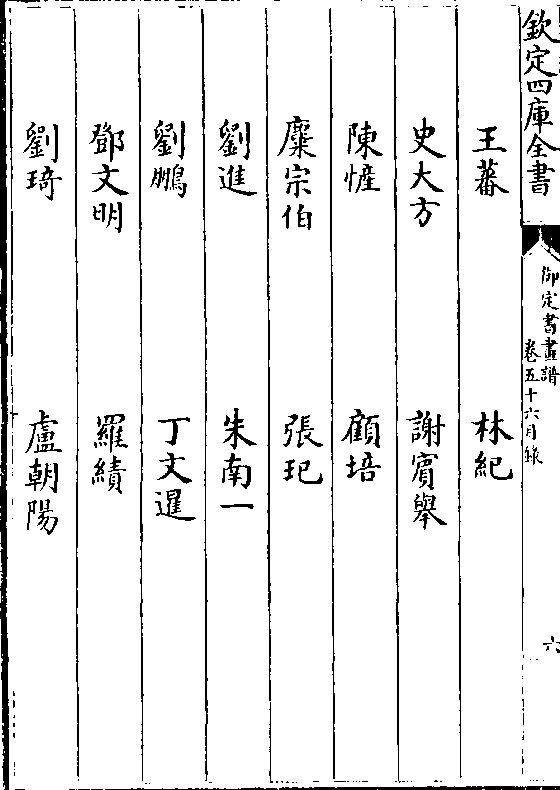 欽定四庫全書
御定書畫譜
卷五十六目錄
六
王蕃 林紀
史大方 謝賓舉
陳㦃 顧培
麋宗伯 張玘
劉進 朱南一
劉鵬 丁文暹
鄧文明 羅績
劉琦 盧朝陽